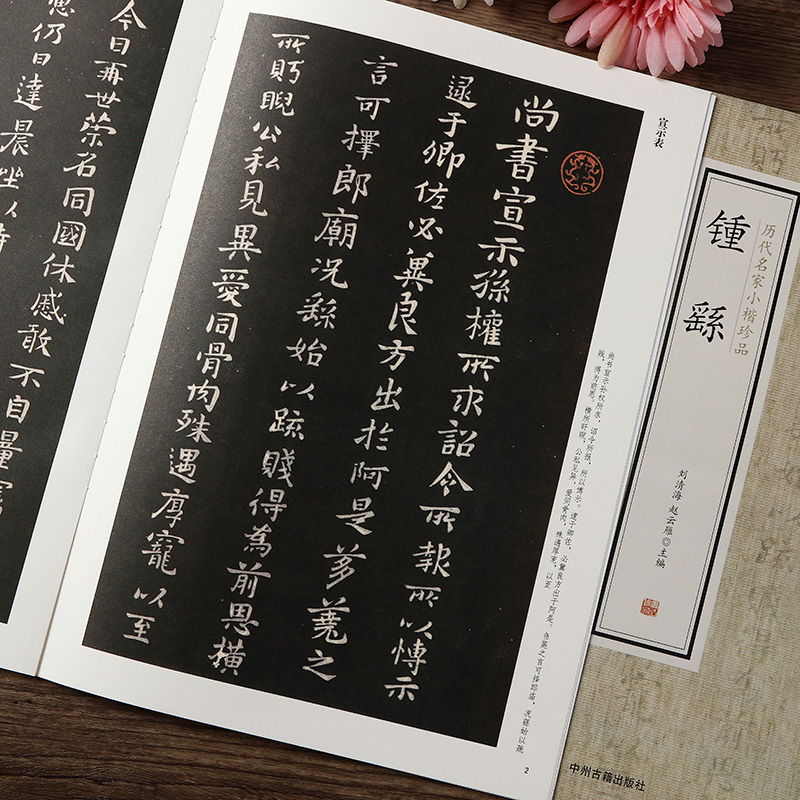 宣示表
尚書宣示孫權所求詔令所報所以愽示
逮于卿佐必冀良方出於阿是芻蕘之
言可擇郎廟況繇始以疏賤得為前恩橫
所眄睨公私見異愛同骨肉殊遇厚寵以至
尚书宣示孙权所求，诏令所报，所以博示。逮于卿佐，必冀良方出于阿是。刍荛之言可择郎庙，况繇始以疏
贱，得为前恩。横所眄睨，公私见异，爱同骨肉，殊遇厚宠，以至
2
今日再世榮名同國休慼敢不自量竊
仍日達晨坐以待
历代名家小楷珍品
锺繇
刘清海 赵云雁◎主编
中州古籍出版社